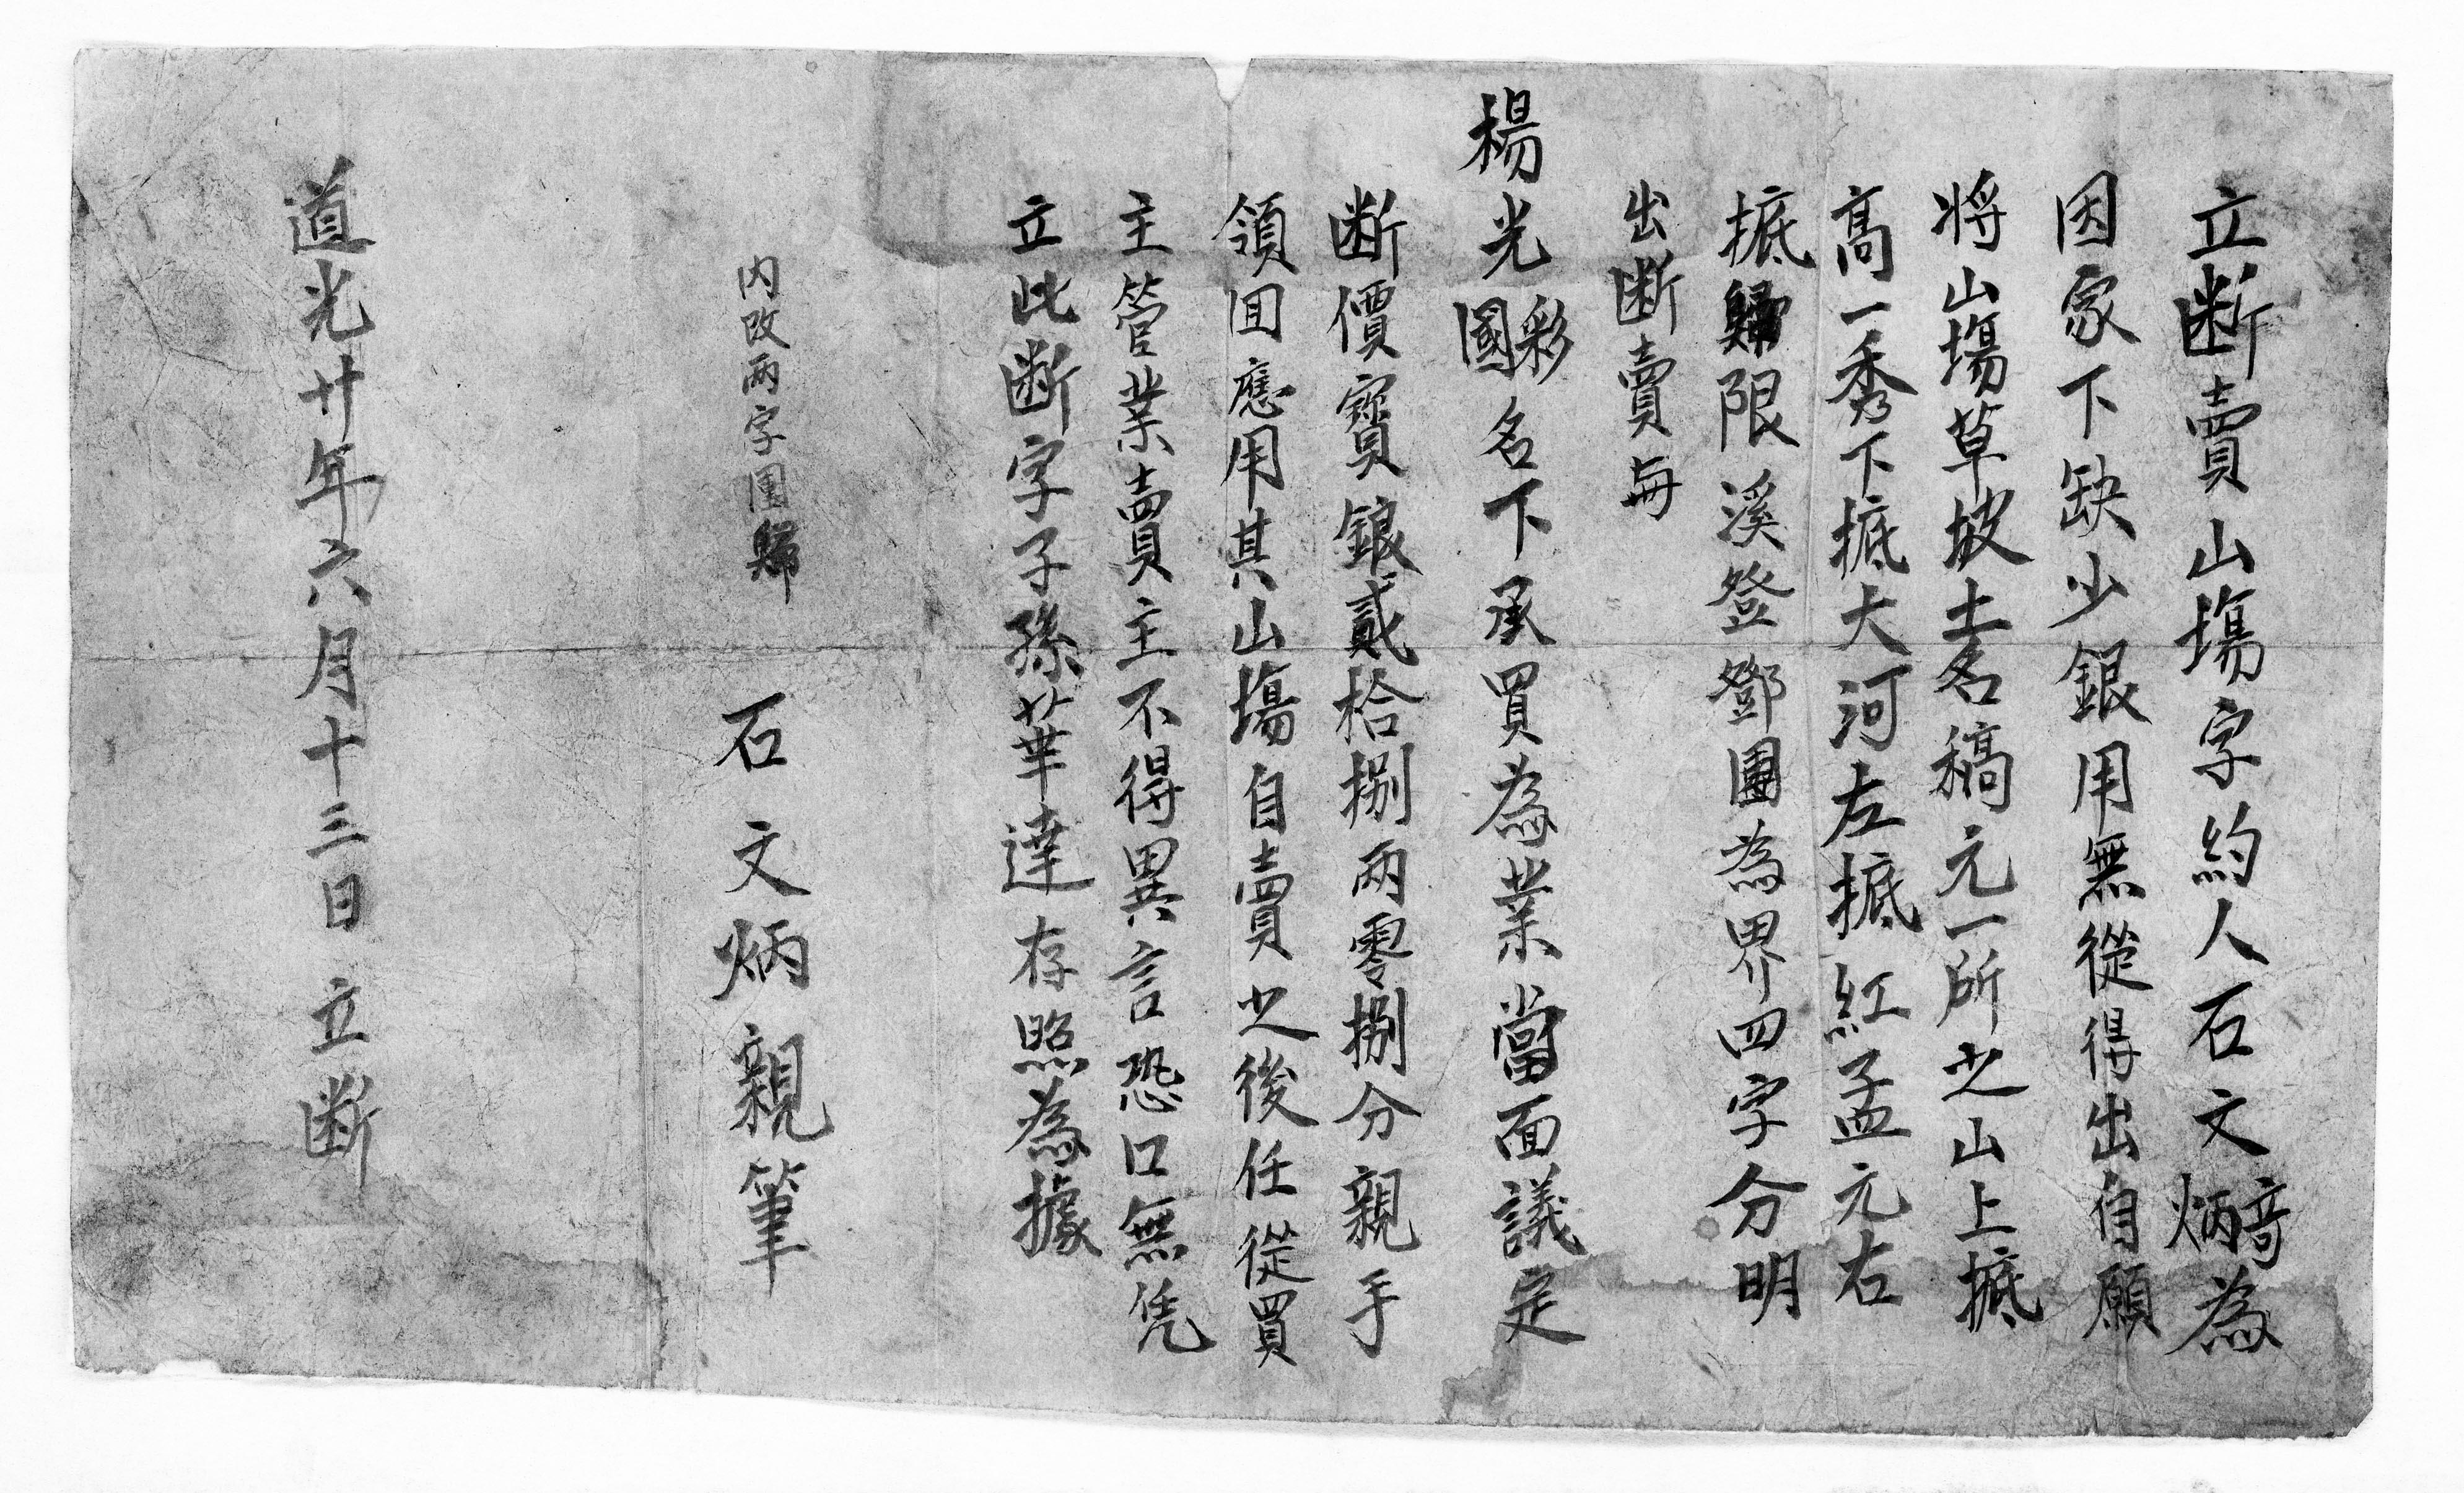 立断賣山塲字約人石文炳𤋮為
因家下缺少銀用無從得出自願
将山塲草坡土名稿元一所之山上抵
高一秀下抵大河左抵紅孟元右
抵歸限溪登鄧團為界四字分明
出断賣與
楊光彩國名下承買為業當面議定
断價寳銀貳拾捌両零捌分親手
領回應用其山塲自賣之後任從買
主管業賣主不得異言恐口無凭
立此断字子孫華達存照為據
内改両字團歸
石文炳親筆
道光廿年六月十三日立断